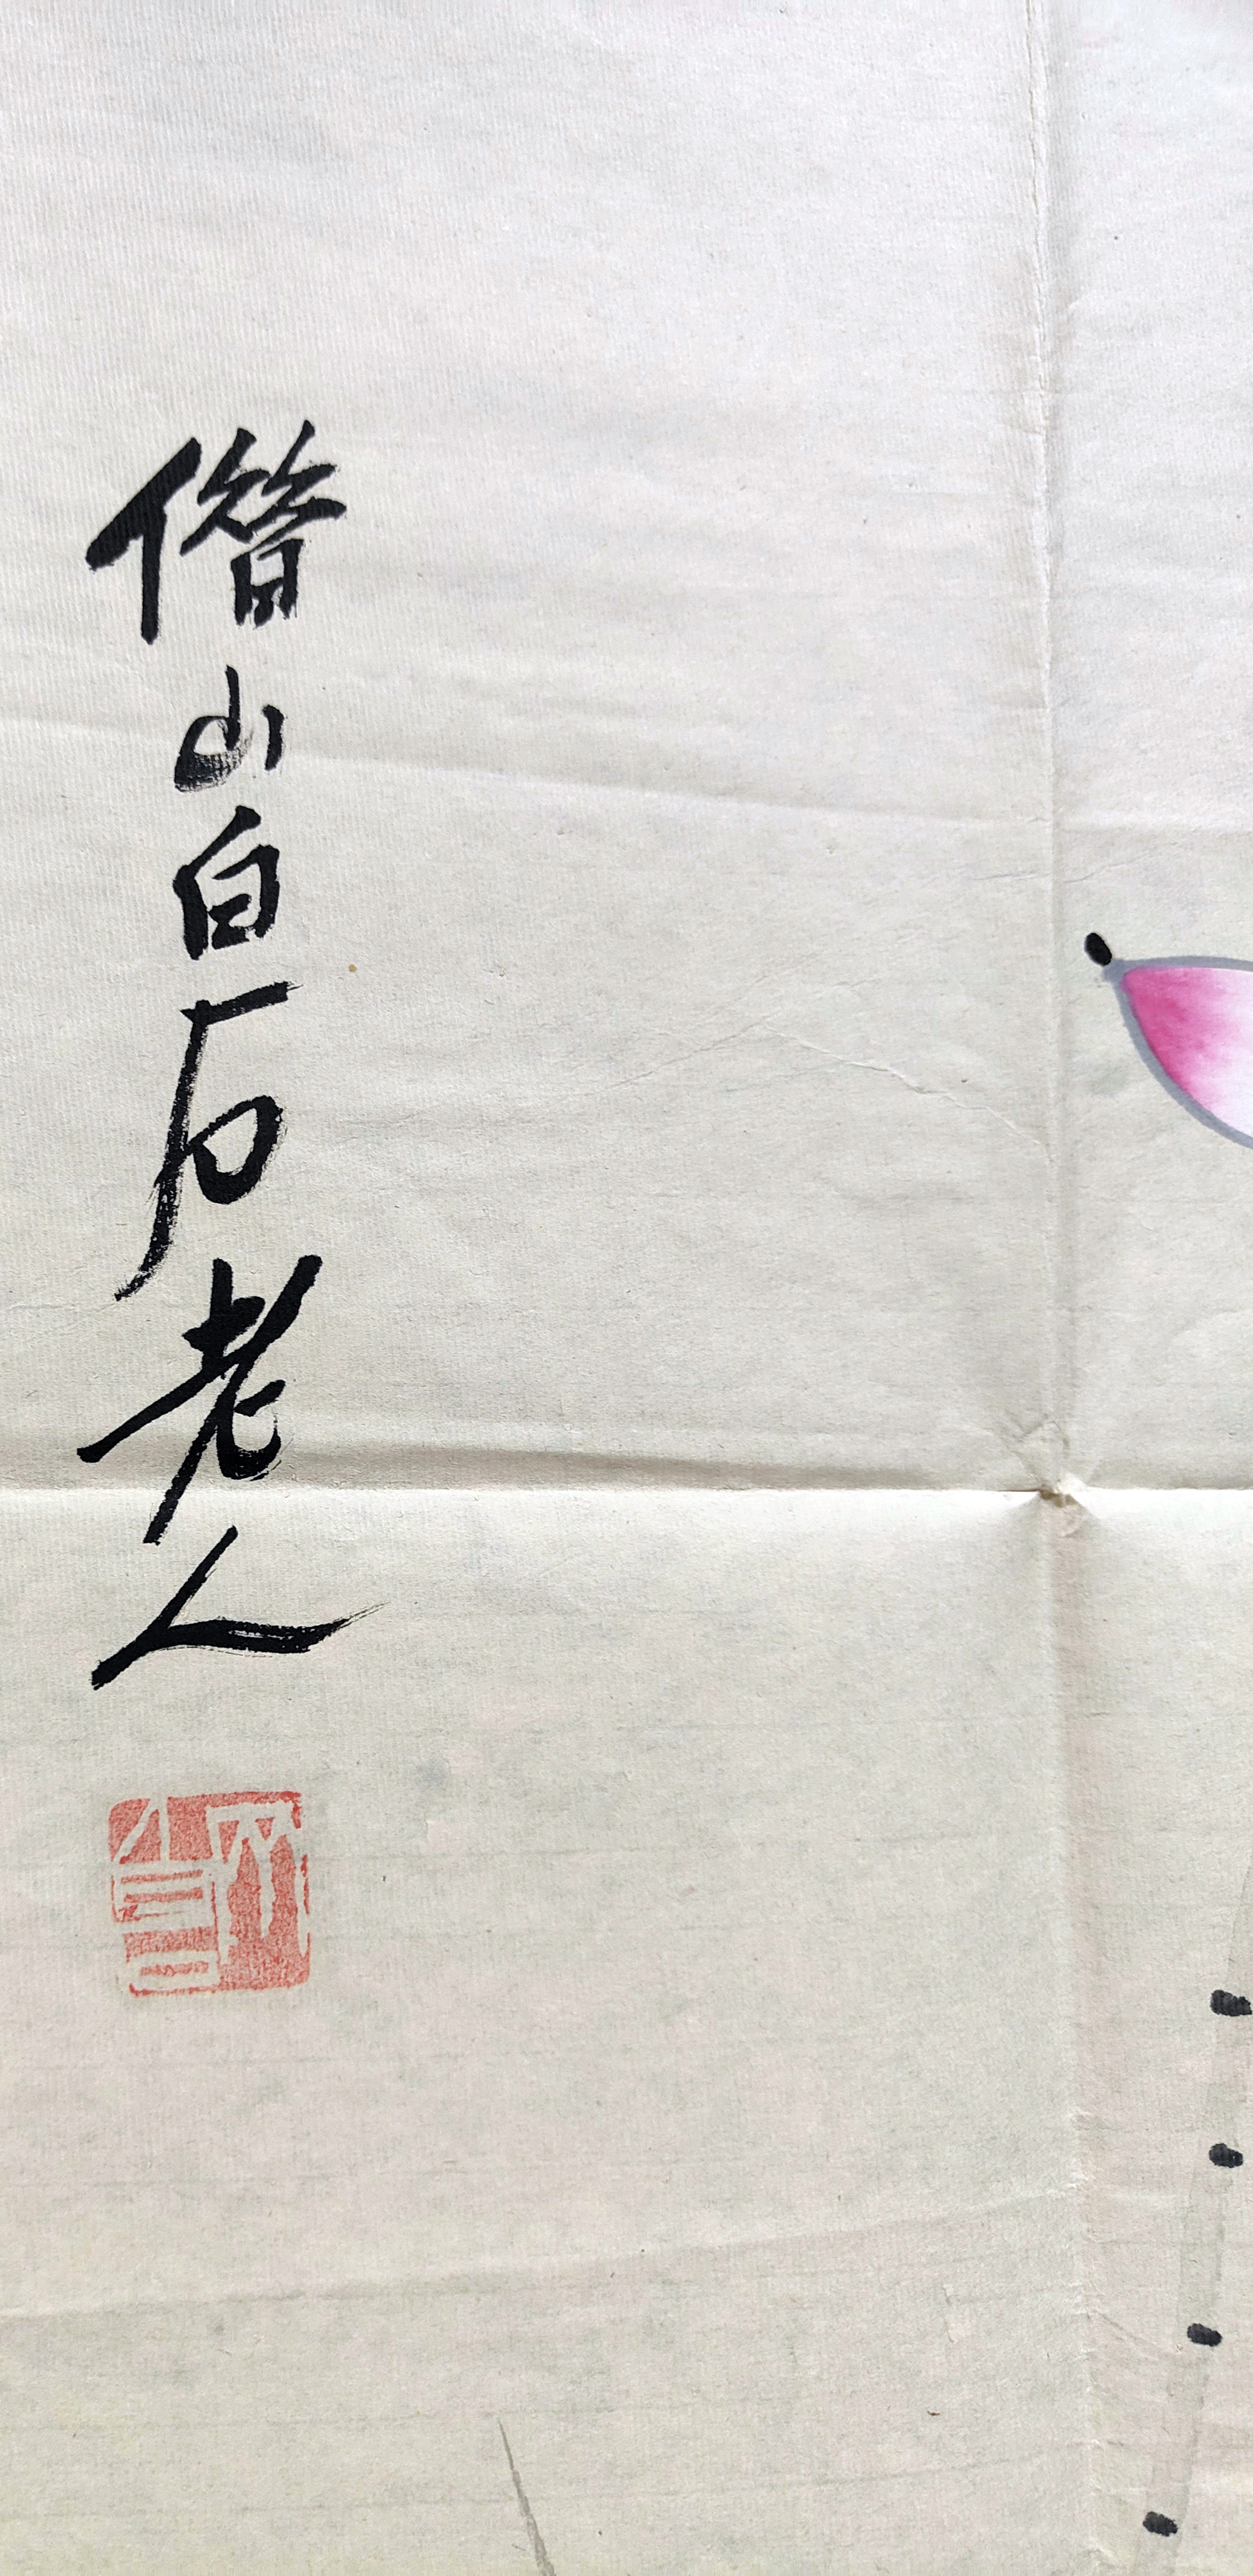 借山白石老人